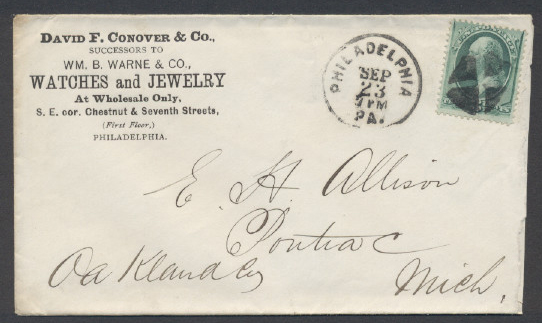 DAVID F. CONOVER & CO.,
SUCCESSORS TO
WM. B. WARNE & CO.,
WATCHES and JEWELRY
At Wholesale Only,
S. E. cor. Chestnut & Seventh Streets,
(First Floor,)
PHILADELPHIA.
PHILADELPHIA
SEP
23
PM
PA.
E. H. Allison
Pontiac
Oakland Co
Mich.